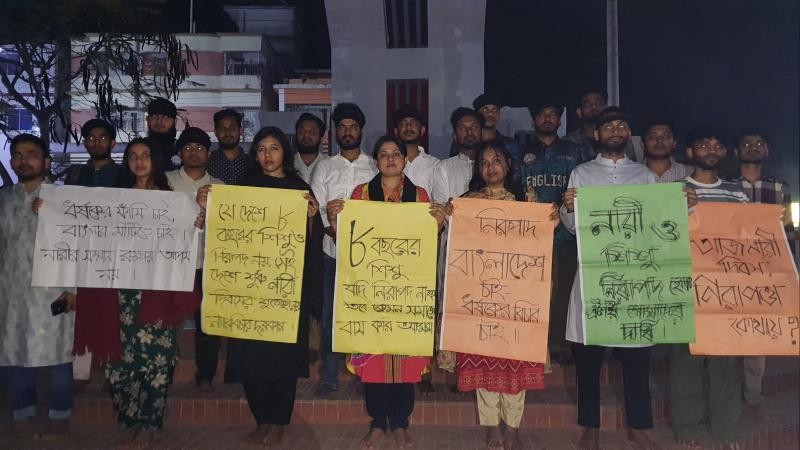 ধর্ষকের ফাঁসি চাই,
বাংলার মাটিতে চাই।
নারীর সম্মান রক্ষায় আপস
নয়।
যে দেশে ৮
বছরের শিশুও
নিরাপদ নয়, সেই
দেশে শুধু নারী
দিবসের শুভেচ্ছা নয়
ন্যায়বিচার দরকার
৮ বছরের
শিশু
যদি নিরাপদ না হয়
তবে কেমন সমাজে
বাস করি আমরা
নিরাপদ
বাংলাদেশ
চাই-
ধর্ষকের বিচার
চাই।।
নারী ও
শিশু
নিরাপদ হোক
এটাই আমাদের
দাবি।
আজ নারী
দিবস
নিরাপত্তা
কোথায়?
ENGLISH